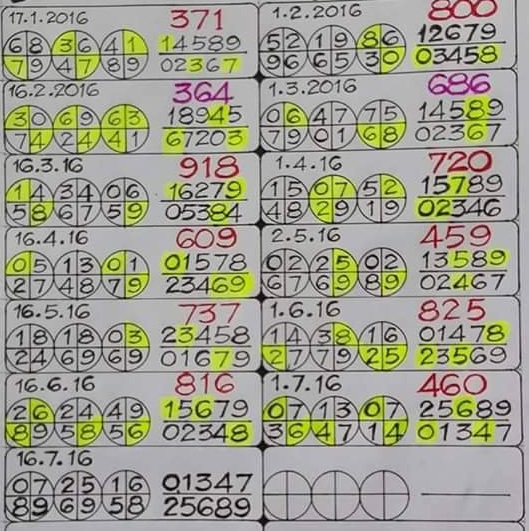 17.1.2016 371
68 36 41 14589
79 47 89 02367
1.2.2016 800
52 19 86 12679
96 65 30 03458
16.2.2016 364
30 69 63 18945
74 24 41 67203
1.3.2016 686
06 47 75 14589
79 01 68 02367
16.3.16 918
14 34 06 16279
58 67 59 05384
1.4.16 720
15 07 52 15789
48 29 19 02346
16.4.16 609
05 13 01 01578
27 48 79 23469
2.5.16 459
02 25 02 13589
67 69 89 02467
16.5.16 737
18 18 03 23458
24 69 69 01679
1.6.16 825
14 38 16 01478
27 79 25 23569
16.6.16 816
26 24 49 15679
89 58 56 02348
1.7.16 460
07 13 07 25689
36 47 14 01347
16.7.16
07 25 16 01347
89 69 58 25689